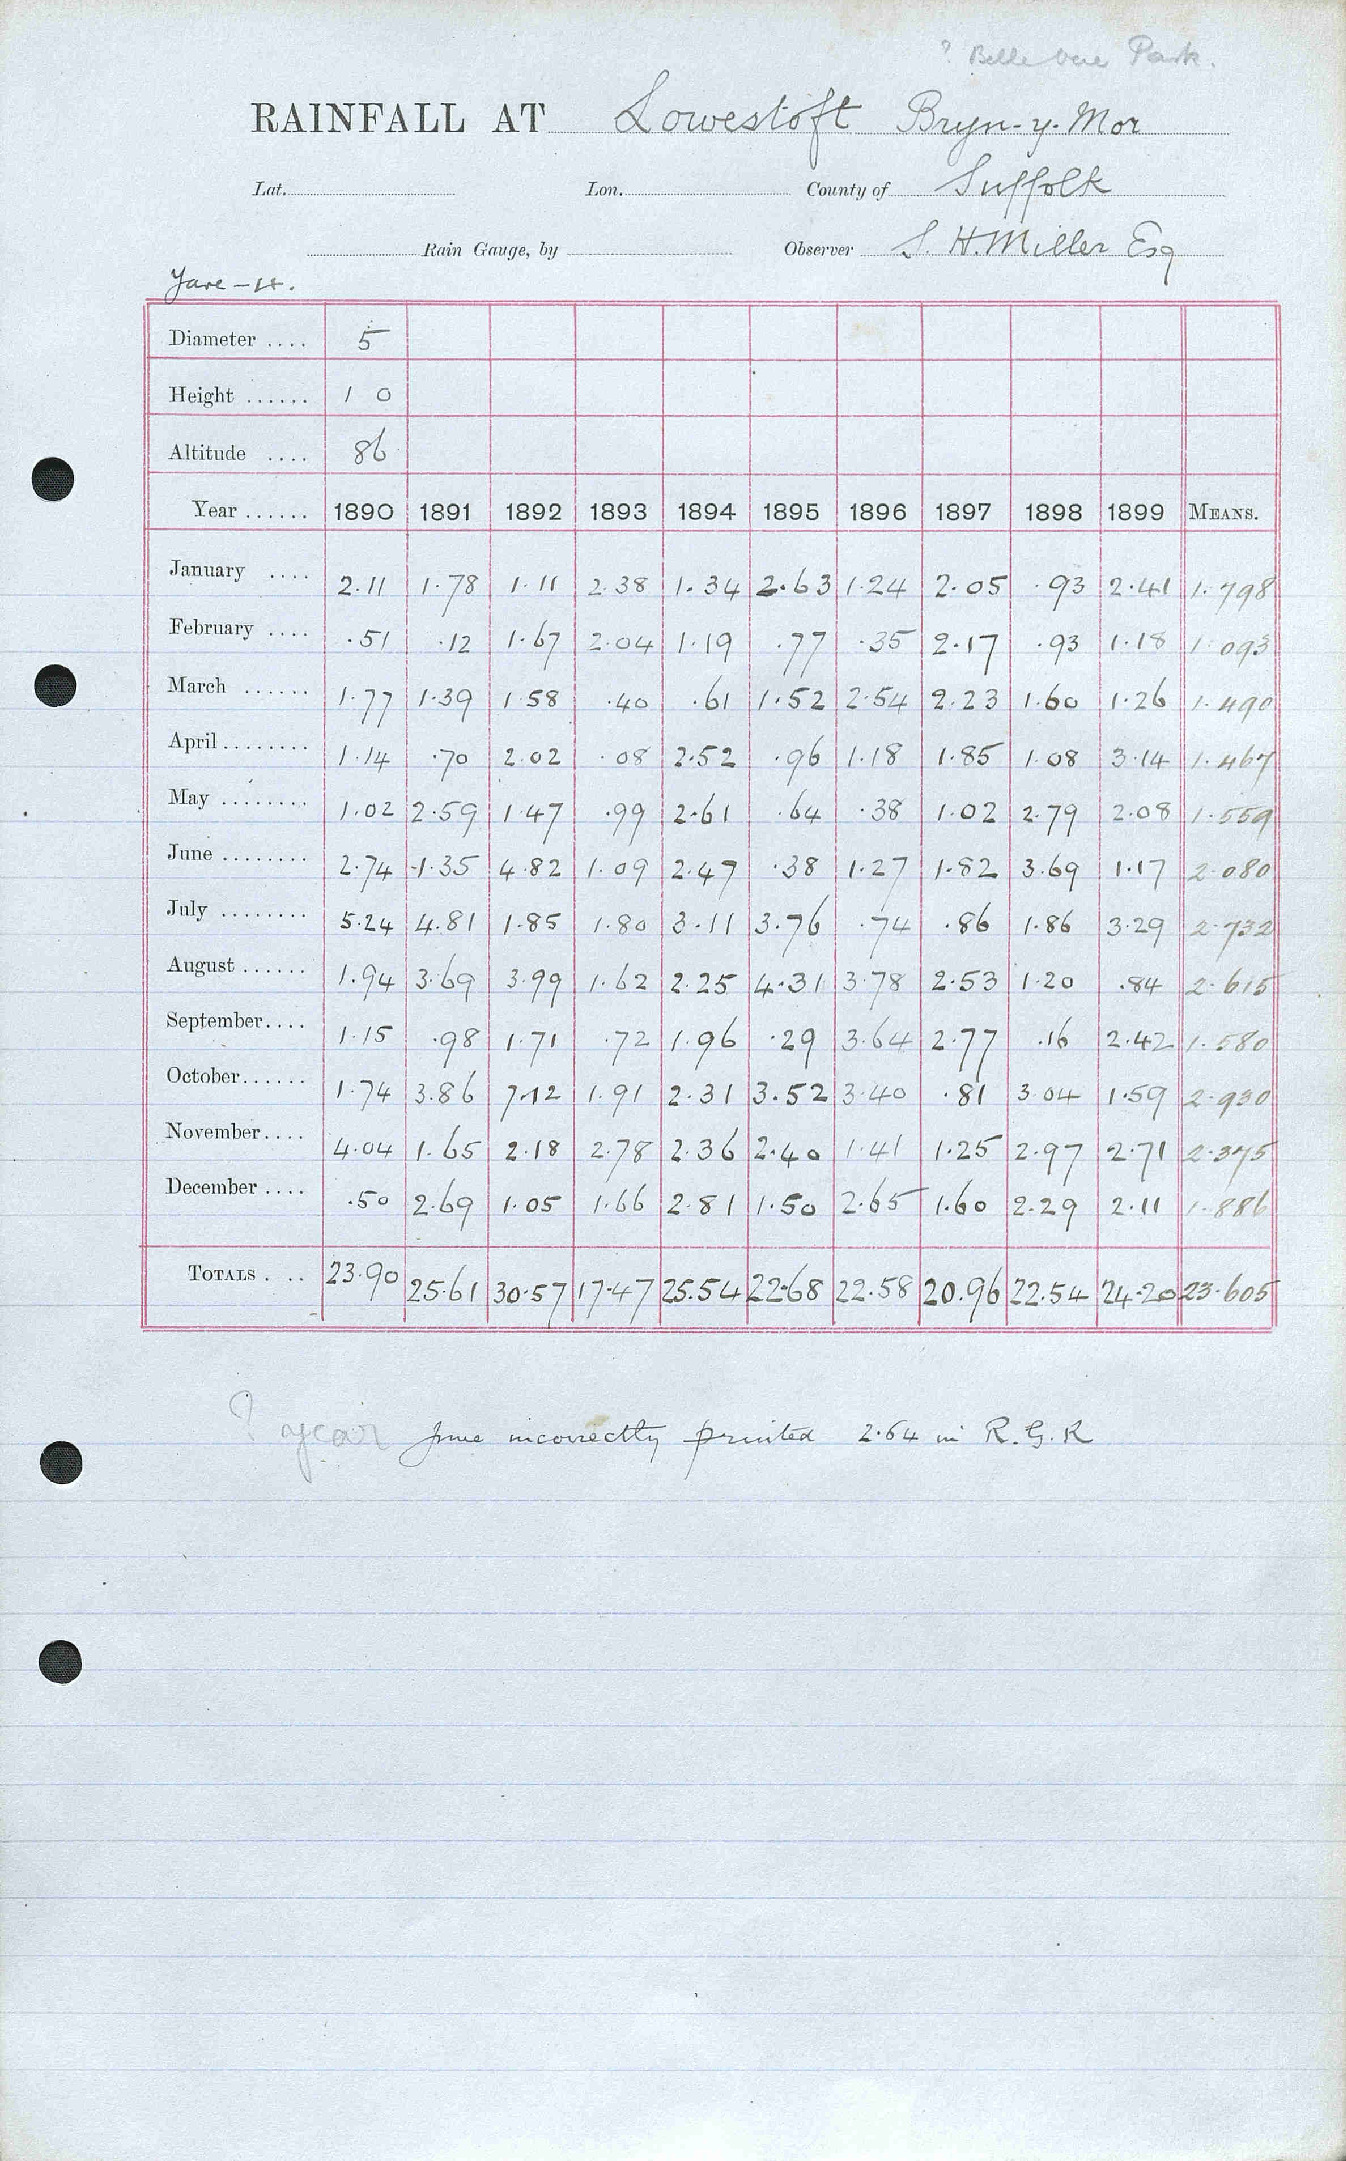 ? Belle Vue Park.
RAINFALL AT Lowestoft Bryn-y-Mor
Lat. Lon. County of Suffolk
Rain Gauge, by Observer S. H. Miller Esq
Yare - 14.
Diameter .... 5
Height ...... 1 0
Altitude .... 86
Year ...... 1890 1891 1892 1893 1894 1895 1896 1897 1898 1899 MEANS.
January .... 2.11 1.78 1.11 2.38 1.34 2.63 1.24 2.05 .93 2.41 1.798
February .... .51 .12 1.67 2.04 1.19 .77 .35 2.17 .93 1.18 1.093
March ...... 1.77 1.39 1.58 .40 .61 1.52 2.54 2.23 1.60 1.26 1.490
April ........ 1.14 .70 2.02 .08 2.52 .96 1.18 1.85 1.08 3.14 1.467
May ........ 1.02 2.59 1.47 .99 2.61 .64 .38 1.02 2.79 2.08 1.559
June ........ 2.74 1.35 4.82 1.09 2.47 .38 1.27 1.82 3.69 1.17 2.080
July ........ 5.24 4.81 1.85 1.80 3.11 3.76 .74 .86 1.86 3.29 2.732
August ...... 1.94 3.69 3.99 1.62 2.25 4.31 3.78 2.53 1.20 .84 2.615
September.... 1.15 .98 1.71 .72 1.96 .29 3.64 2.77 .16 2.42 1.580
October...... 1.74 3.86 7.12 1.91 2.31 3.52 3.40 .81 3.04 1.59 2.930
November.... 4.04 1.65 2.18 2.78 2.36 2.40 1.41 1.25 2.97 2.71 2.375
December .... .50 2.69 1.05 1.66 2.81 1.50 2.65 1.60 2.29 2.11 1.886
TOTALS . .. 23.90 25.61 30.57 17.47 25.54 22.68 22.58 20.96 22.54 24.20 23.605
? year June incorrectly printed 2.64 in R.G.R